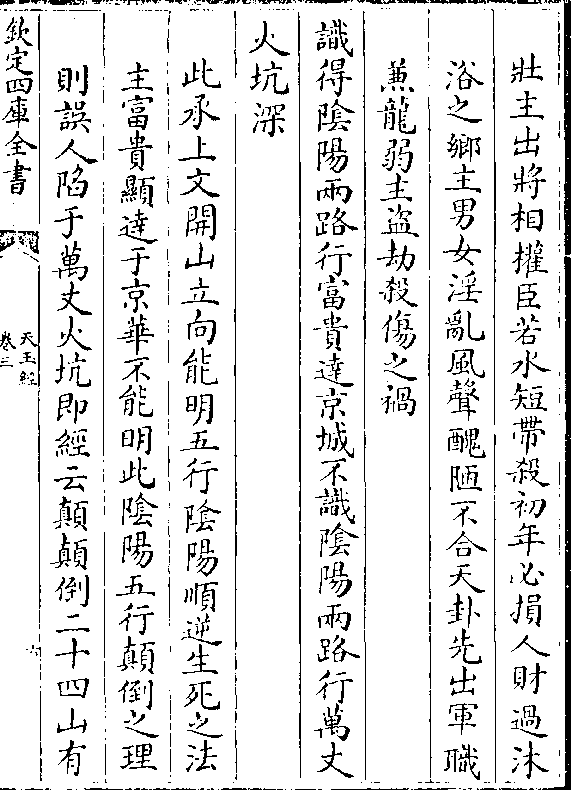 壯主出將相權臣若水短帶殺初年必損人財過沐
浴之鄉主男女淫亂風聲醜陋不合天卦先出軍職
兼龍弱主盜劫殺傷之禍
識得陰陽兩路行富貴達京城不識陰陽兩路行萬丈
火坑深
此承上文開山立向能明五行陰陽順逆生死之法
主富貴顯達于京華不能明此陰陽五行顛倒之理
則誤人陷于萬丈火坑即經云顛顛倒二十四山有
欽定四庫全書
天玉經
卷三